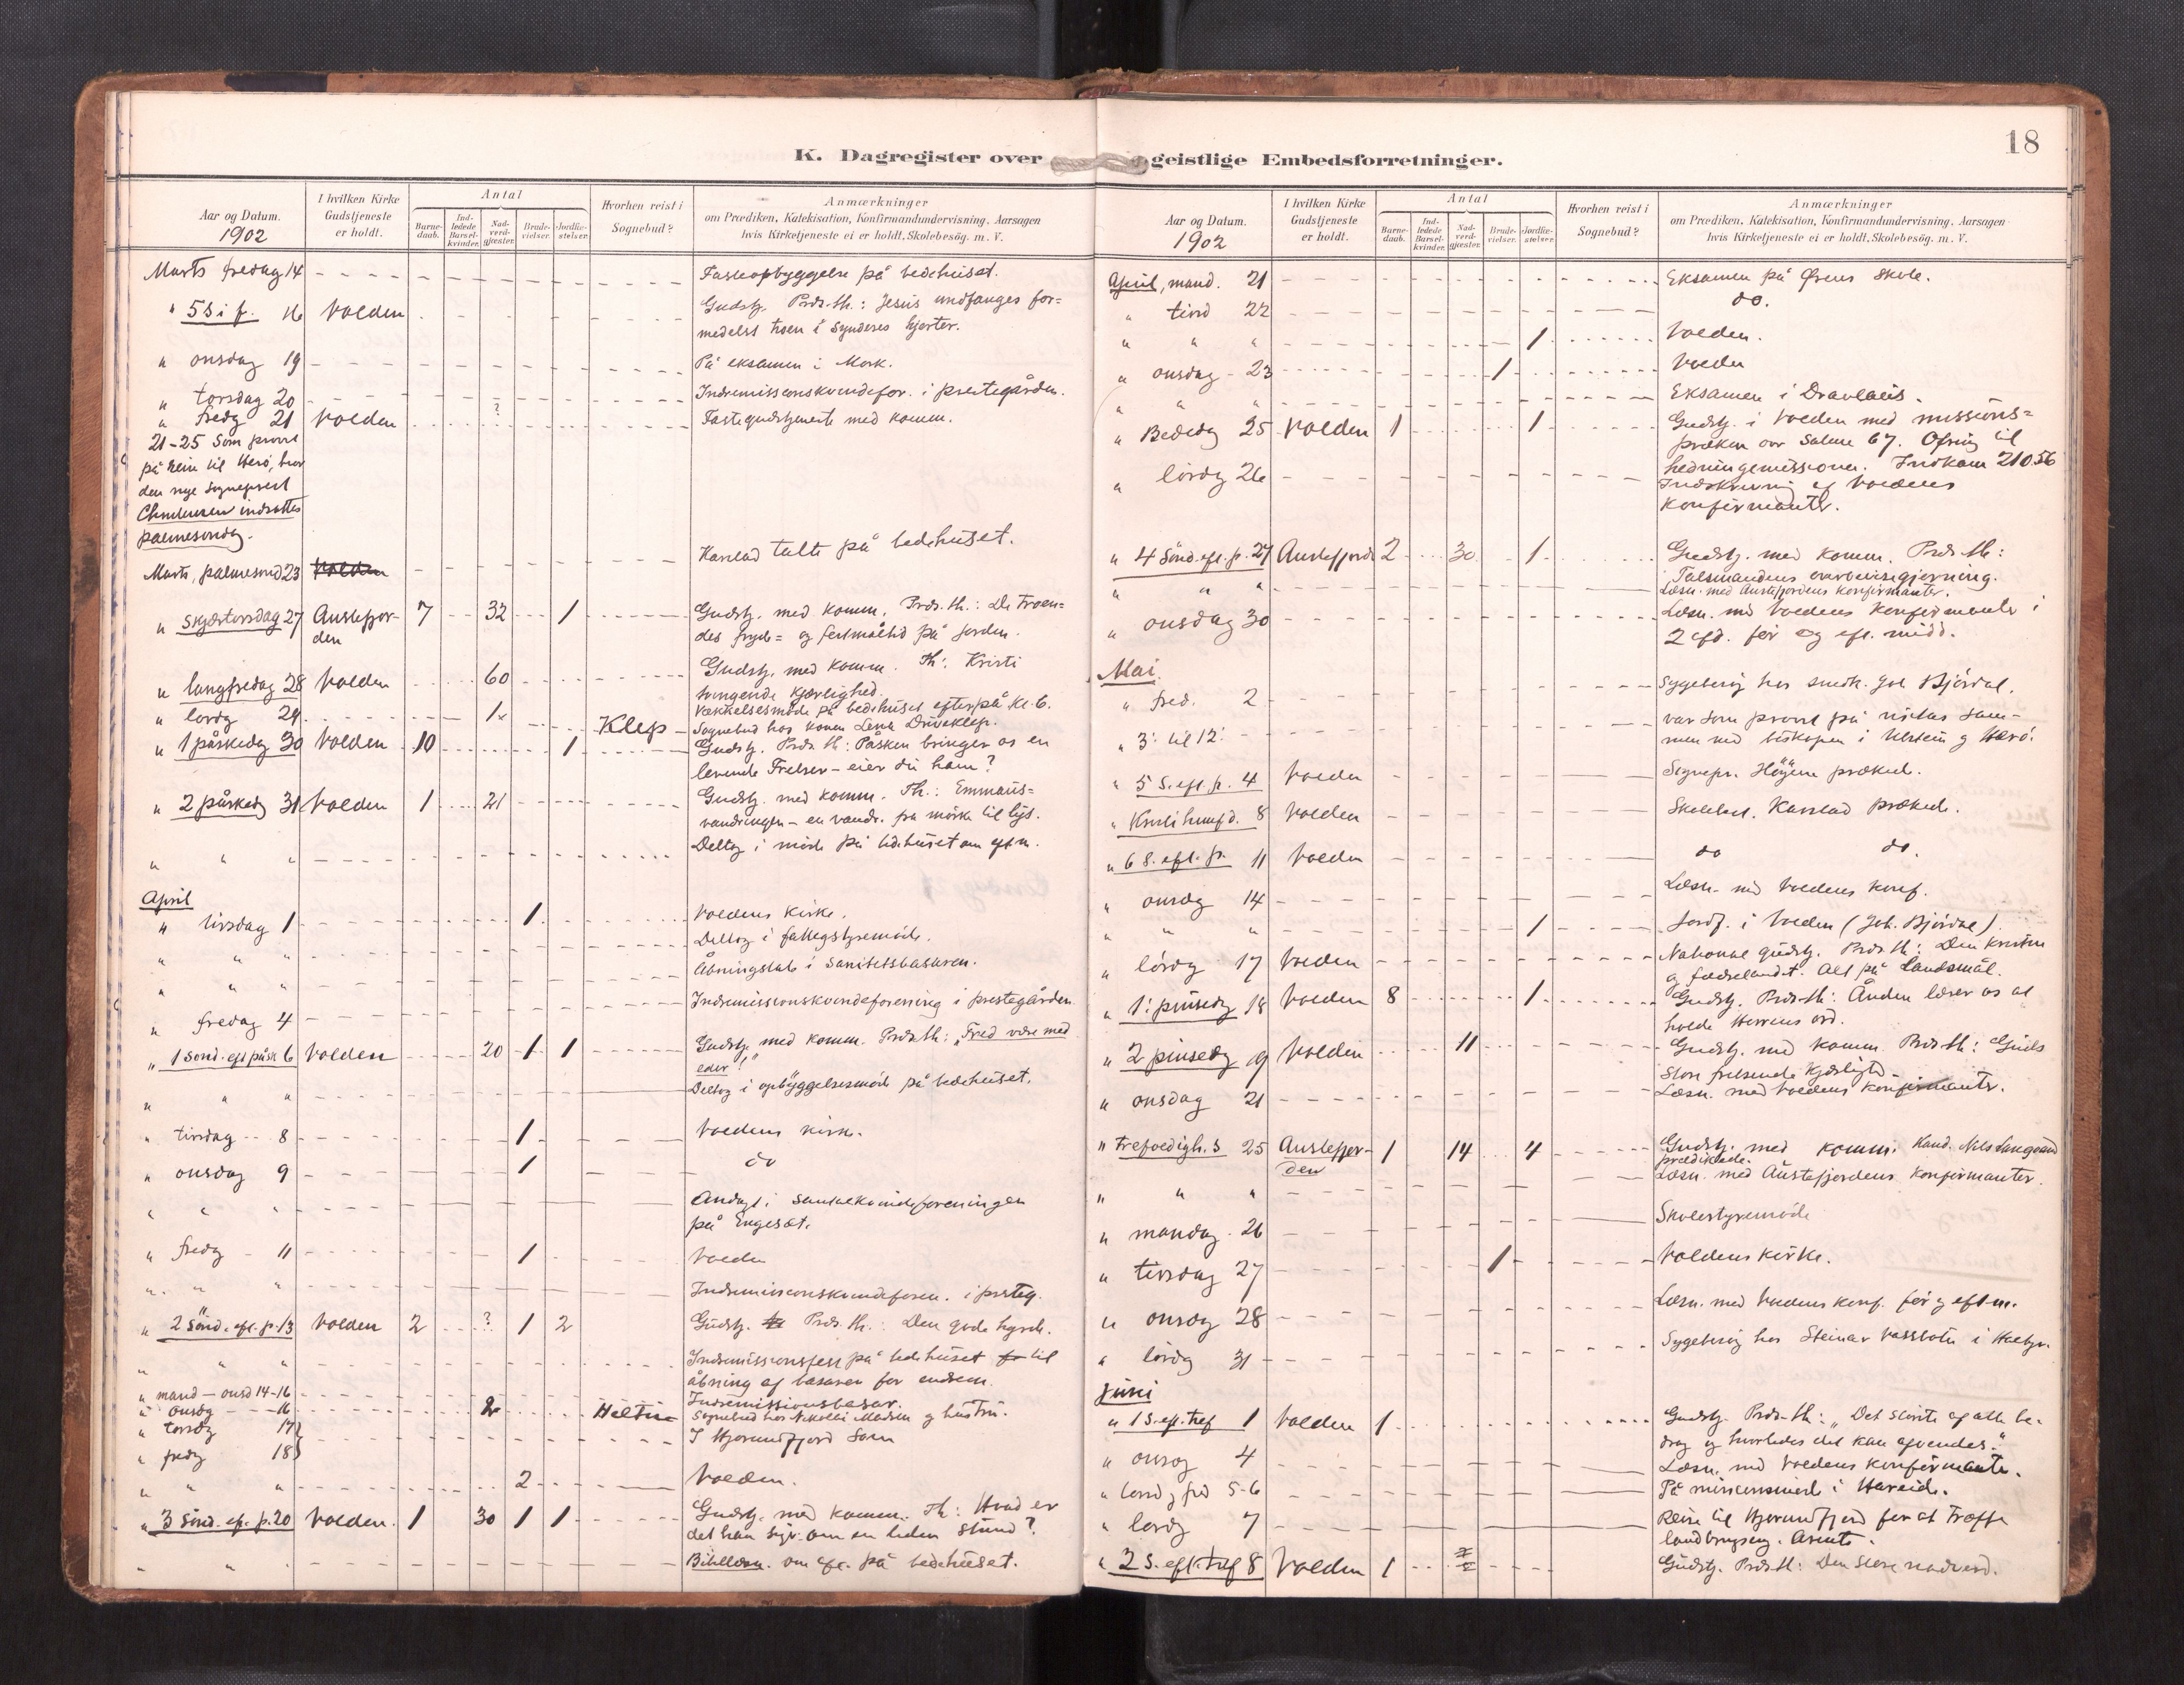 18
K. Dagregister over geistlige Embedsforretninger.
Aar og Datum.
1902
I hvilken Kirke Gudstjeneste er holdt.
Antal
Barnedaab.
Indledede Barselkvinder.
Nadverdgjæster.
Brudevielser.
Jordfæstelser.
Hvorhen reist i Sognebud?
Anmærkninger
om Prædiken, Katekisation, Konfirmandundervisning, Aarsagen
hvis Kirketjeneste ei er holdt, Skolebesög. m. V.
Marts fredag 14 Fasteopbyggelse på bedehuset.
" 5 S i f. 16 Volden Gudstj. Præd.th.: Jesus undfanges for=
medelst troen i synderes hjerter.
" onsdag 19 På eksamen i Mork.
" torsdag 20 Indremissionskvindefor. i prestegården.
" fredg 21 Volden ? Fastegudstjeneste med komm.
21-25 Som provst
på reise til Herö, hvor
den nye sogneprest
indsattes
palmesondag.
Marts, palmesond 23 Volden Kaarstad talte på bedehuset.
" skjærtorsdag 27 Austefjor- 7 32 1 Gudstj. med komm. Præd. th.: De troen=
den des fryde= og festmåltid på jorden.
" langfredag 28 Volden 60 Gudstj. med komm. Th: Kristi
tvingende kjærlighed.
Vækkelsesmöde på bedehuset efterpå kl. 6.
" lordg 29 1 Klep Sognebud hos konen Lena Driveklep.
" 1 påskedg 30 Volden 10 1 Gudstj. Præd. th: Påsken bringer os en
levende Frelser – eier du ham?
" 2 påskedg 31 Volden 1 21 Gudstj. med komm. Th.: Emmaus=
vandringen – en vandr. fra mörke til lys.
" " " Deltog i möde på bedehuset om eftm.
April
" tirsdag 1 1 Voldens kirke.
" " " Deltog i fattigstyremöde.
" " " Åbningstale i Sanitetsbasaren.
" fredag 4 Indremissionskvindeforening i prestegården
" 1 sond. eft påsk 6 Volden 20 1 1 Gudstj. med komm. Præd.th: "Fred være med
eder"!
" " " Deltog i opbyggelsesmöde på bedehuset.
" tirsdag 8 1 Voldens kirke.
" onsdag 9 1 do
" " " Andagt i Santalkvindeforeningen
på Engeset.
" fredg 11 1 Volden
" " " Indremissionskvindeforen. i presteg.
" 2 Sönd. eft. p. 13 Volden 2 ? 1 2 Gudstj. Præd. th.: Den gode hyrde.
" " " Indremissionsfest på bedehuset til
åbning af basaren for indrem.
" mand – onsd 14-16 Indremissionsbasar.
" onsdg 16 2 Sognebud hos Nikolai Madsen og hustru.
" torsdg 17} I Hjorundfjord som
" fredg 18}
" " " 2 Volden.
" 3 Sönd. ef. p. 20 Volden. 1 30 1 1 Gudstj. med komm. Th: Hvad er
det han siger om en liden stund?
" " Bibellæsn. om eft. på bedehuset.
Aar og Datum.
1902
I hvilken Kirke Gudstjeneste er holdt.
Antal
Barnedaab.
Indledede Barselkvinder.
Nadverdgjæster.
Brudevielser.
Jordfæstelser.
Hvorhen reist i Sognebud?
Anmærkninger
om Prædiken, Katekisation, Konfirmandundervisning, Aarsagen
hvis Kirketjeneste ei er holdt, Skolebesög. m. V.
April, mand. 21 Eksamen på Örens skole.
" tirsd 22 do.
" " " 1 Volden.
" onsdag 23 1 Volden
" " " Eksamen i Dravlaus.
" Bededg 25 Volden 1 1 Gudstj. i Volden med missions=
præken over Salme 67. Ofring til
hedningemissionen. Indkom 210.56
" lördg 26 Indskrivning af Voldens
konfirmanter.
" 4 Sönd. eft. p. 27 Austefjord 2 30 1 Gudstj. med komm. Præd. th:
Talsmandens overbevisegjerning.
" " " Læsn. med Austefjordens konfirmanter.
" onsdag 30 Læsn. med Voldens konfirmanter i
2 afd. för og eft. midd.
Mai
" fred. 2 Sygebesög hos snedk. Joh Björdal.
" 3: til 12: var som provst på visitas sam-
men med biskopen i Ulstein og Herö.
" 5 S. eft. p. 4 Volden Sognepr. Höyem prækede.
" Kristi himfd. 8 Volden Skolebest. Kaarstad prækede.
" 6 S. eft. p. 11 Volden do do.
" onsdg 14 Læsn. med Voldens konf.
" " " 1 Jordf. i Volden (Joh. Björdal)
" lördg 17 Volden National gudstj. Præd.th: Den kristne
og fædrelandet. Alt på Landsmål.
" 1: pinsedg 18 Volden 8 1 Gudstj. Præd.th: Ånden lærer os at
holde Herrens ord.
" 2 pinsedg 19 Volden 11 Gudstj. med komm. Præd th: Guds
store frelsende kjærlighed
" onsdag 21 Læsn. med Voldens konfirmanter.
" trefoldigh. S 25 Austefjor- 1 14 4 Gudstj. med komm. Kand. Nils
den prædikede.
" " " Læsn. med Austefjordens konfirmanter.
" mandag 26 Skolestyremöde
" tirsdag 27 1 Voldens kirke.
" onsdg 28 Læsn. med Voldens konf. for og eftm.
" lördg 31 Sygebesög hos Steinar i
Juni
" 1 S. eft. tref 1 Volden 1 Gudstj. Præd-th: "Det störste af alle be-
drag og hvorledes det kan afvendes."
" onsdg 4 Læsn. med Voldens konfirmanter.
" torsd og fred 5-6 På missionsmöde i Hareide.
" lordg 7 Reise til Hjorundfjord for at træffe
landbrugsing. Arentz.
" 2 S. eft. tref 8 Volden 1 Gudstj. Præd.th: Den store nadverd.